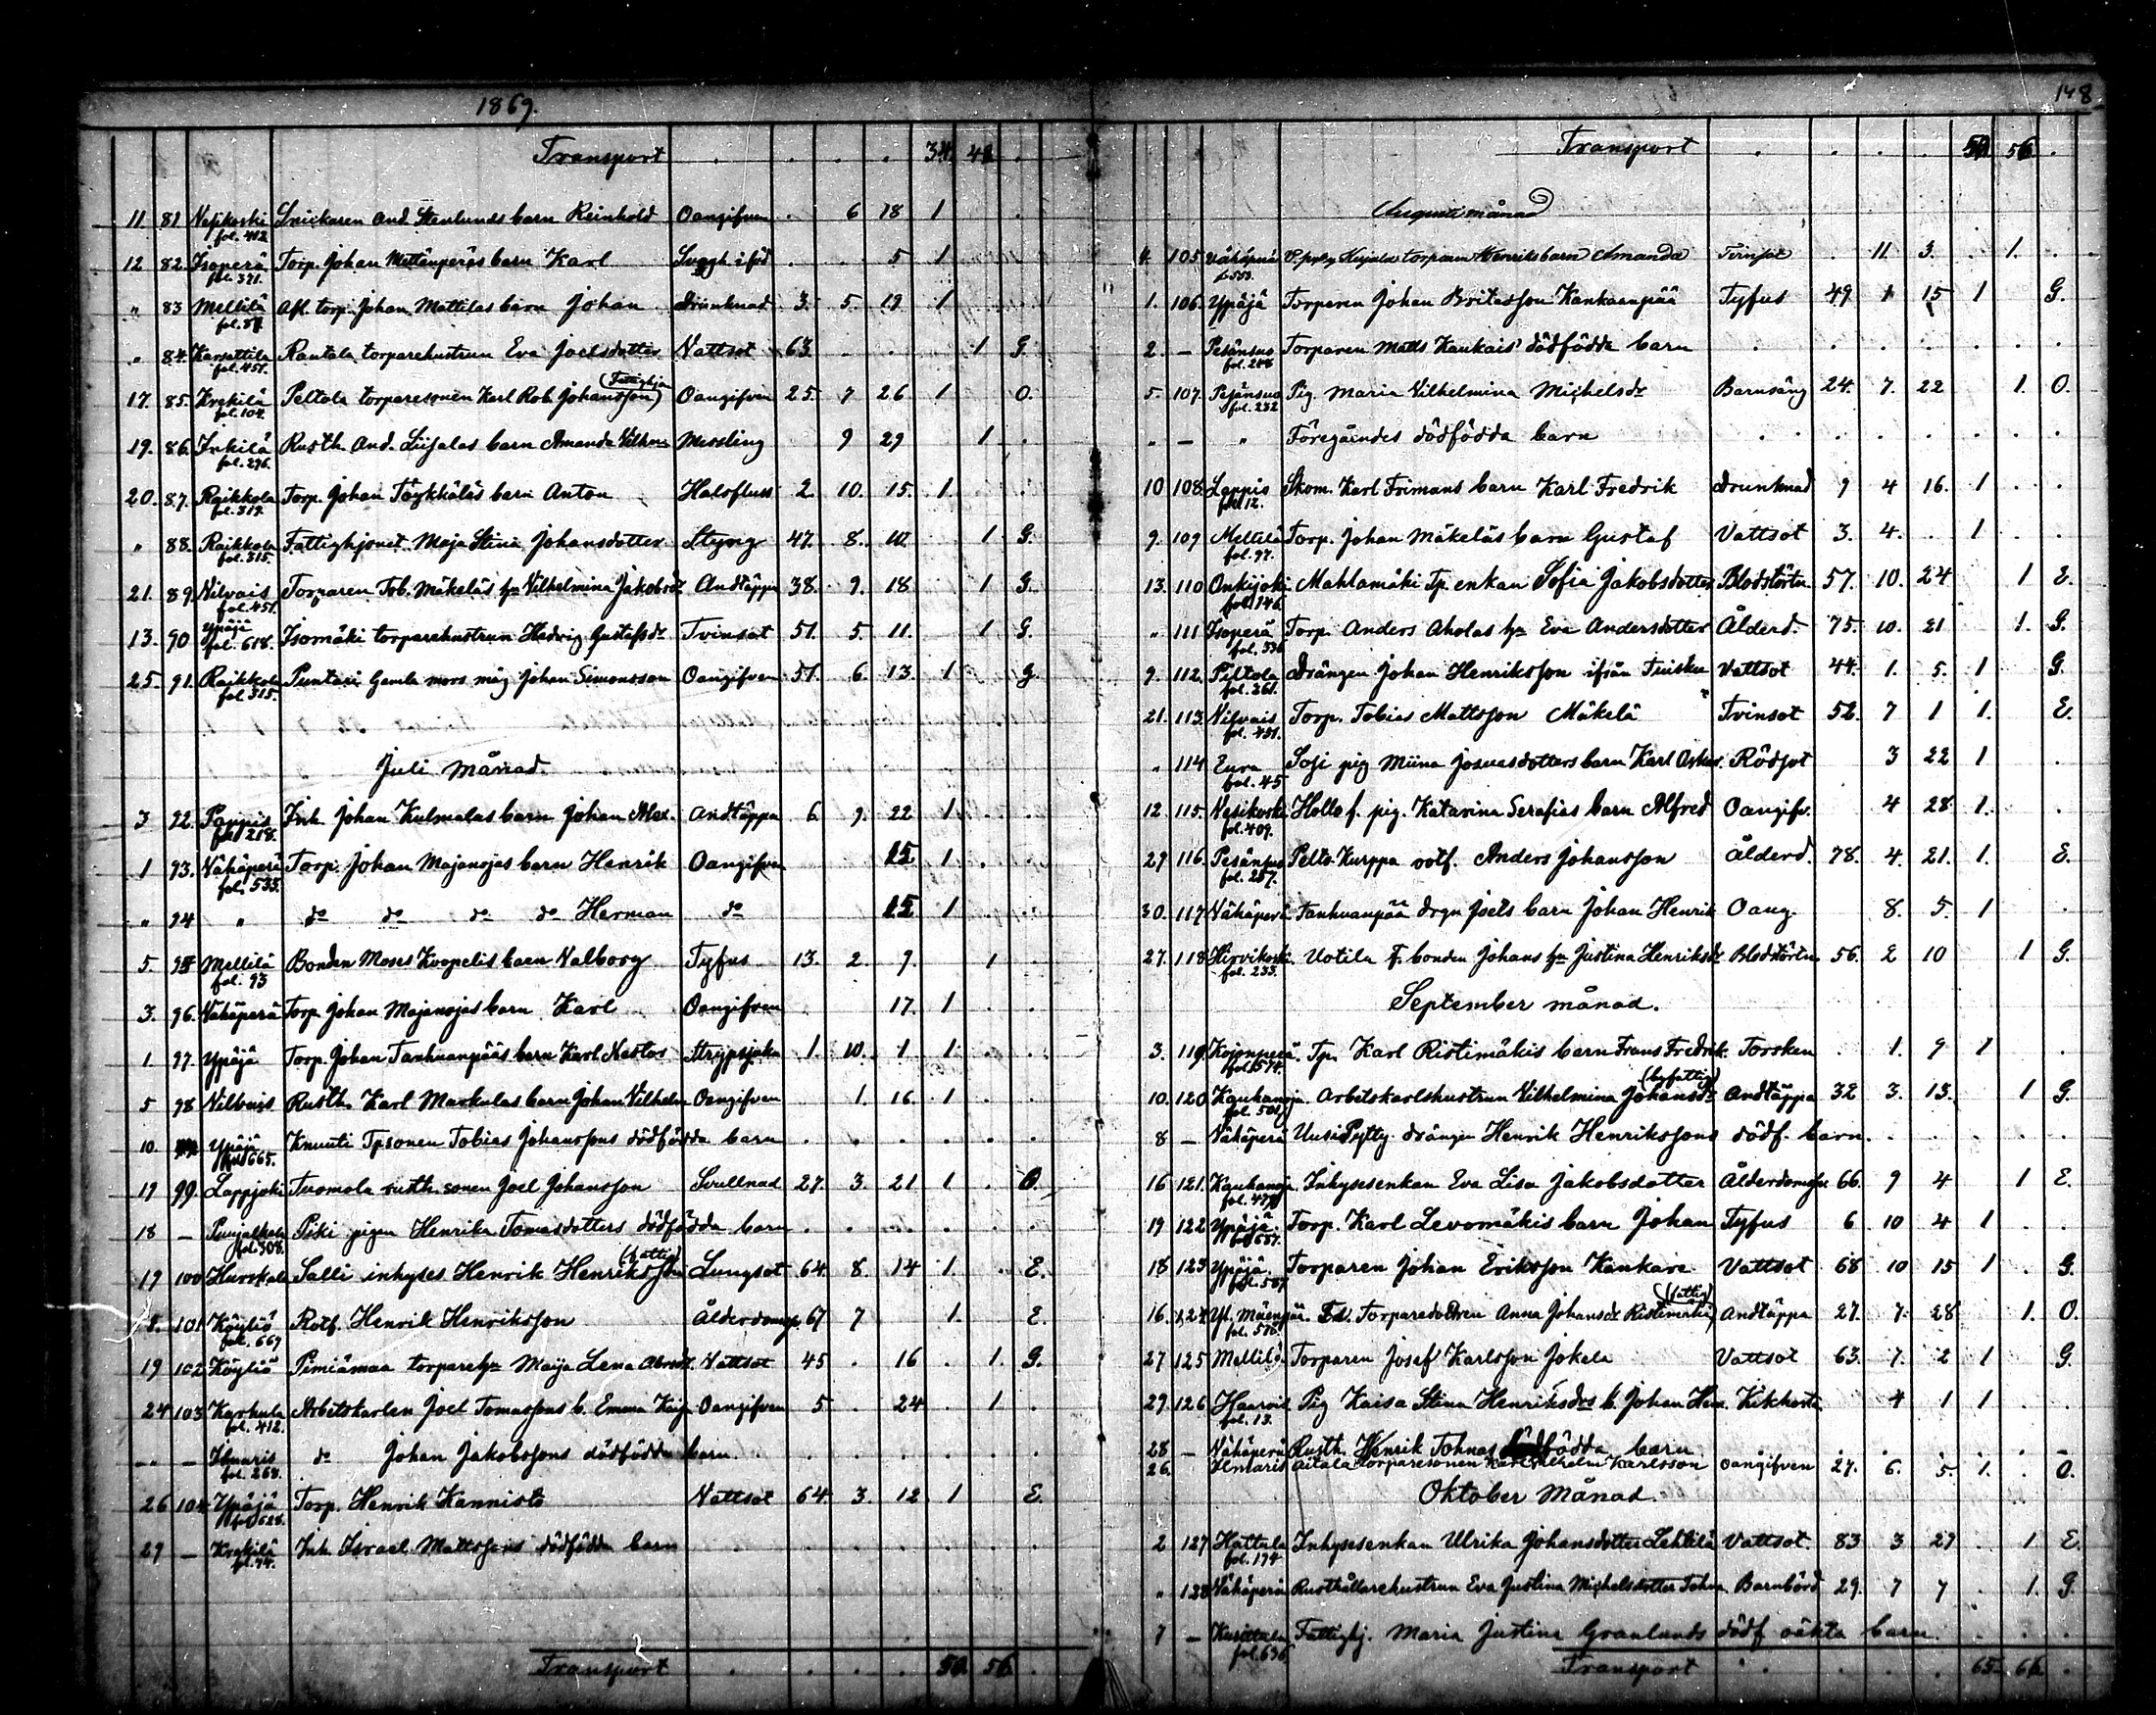 1869.
Transport . . . . 34. 48 .
11. 81 Vesikoski fol. 412 Snickaren And. Stenlunds barn Reinhold Oangifven . 6 18 1
12 82. Isoperä fol. 371. Torp. Johan Mettänperäs barn Karl 5 1
" 83 Mellilä fol. 87. Afl. torp. Johan Mattilas barn Johan drunknad 3. 5. 19 1
" 84. Karsattila fol. 451. Rantala torparehustrun Eva Joelsdotter Vattsot 63. . . . 1 G.
17. 85. Krekilä fol. 104. Peltola torparesonen Karl Rob. Johansson (Fattighjon) Oangifven 25. 7 26 1 O.
19. 86. Inkilä fol. 296. Rusth. And. Liisalas barn Amanda Vilhm Messling 9 29 1
20. 87. Raikkola fol. 319. Torp. Johan Töykkäläs barn Anton Halsfluss 2. 10. 15. 1
" 88. Raikkola fol. 315. Fattighjonet Maja Stina Johansdotter Styng 47. 8. 10. 1 G.
21. 89. Vilvais fol. 451. Torparen Tob. Mäkeläs h:u Vilhelmina Jakobsdr Andtäppa 38. 9. 18 1 G.
13. 90 Ypäjä fol. 618. Isomäki torparehustrun Hedvig Gustafsdr Tvinsot 51. 5. 11. 1 G.
25. 91. Raikkola fol. 315. Puntari Gamla mors måg Johan Simonsson Oangifven 51. 6. 13. 1 G.
Juli Månad.
3 92. Pappis fol. 218. Inh. Johan Kulmalas barn Johan Alex. Andtäppa 6. 9. 22 1
1 93. Vähäperä fol. 533. Torp. Johan Majanojas barn Henrik Oangifven 15 1
" 94 " do do do do Herman do 15 1
5. 95 Mellilä fol. 93 Bonden Moses Kvopelis barn Valborg Tyfus 13. 2. 9. 1
3. 96. Vähäperä Torp. Johan Majanojas barn Karl Oangifven 17. 1
1. 97. Ypäjä Torp. Johan Tanhuanpääs barn Karl Nestor Strypsjuka 1. 10. 1 1
5 98 Vilvais Rusth. Karl Markulas barn Johan Vilhelm Oangifven 1. 16. 1
10. Ypäjä fol. 665. Knuuti Tpsonen Tobias Johanssons dödfödda barn
17 99. Lappjoki Tuomola rusth. sonen Joel Johansson Svullnad 27. 3. 21 1 O.
18 — Punjalkola fol. 308. Piki pigan Henrika Tomasdotters dödfödda barn
17 100 Hurskala Salli inhyses Henrik Henriksson (fattig) Lungsot 64. 8. 14 1. E.
8. 101 Köyliö fol. 669 Rotf. Henrik Henriksson Ålderdomsv. 67 7 1. E.
19 102 Köyliö Pimiämaa torpareh:u Maija Lena Abrdr. Vattsot 45 . 16 . 1. G.
24 103 Karhula fol. 412. Arbetskarlen Joel Tomassons b. Emma Kaisa Oangifven 5 . 24 1
— — Ilmaris fol. 268. do Johan Jakobssons dödfödda barn
26 104. Ypäjä fol. 628. Torp. Henrik Kannisto Vattsot 64. 3. 12. 1 E.
29 — Krekilä fol. 94. Inh. Israel Mattssons dödfödda barn
Transport . . . . 50. 56.
148
Transport . . . . 50. 56.
Augusti månad
4. 105 Vähäperä f. 553. torparen Henriks barn Amanda Tvinsot 11. 3. 1.
1. 106. Ypäjä Torparen Johan Britasson Kankaanpää Tyfus 49 1 15 1 G.
2. — Pesänsuo fol. 208 Torparen Matts Kaukais' dödfödda barn
5. 107. Pesänsuo fol. 232 Pig. Maria Vilhelmina Michelsdr Barnsäng 24. 7. 22 1. O.
" — " Föregåendes dödfödda barn
10 108. Lappis fol. 12. Skom. Karl Frimans barn Karl Fredrik drunknad 9 4 16. 1
9. 109 Mellilä fol. 97. Torp. Johan Mäkeläs barn Gustaf Vattsot 3. 4. . 1
13. 110 Onkijoki fol. 146 Mahlamäki Tp. enkan Sofia Jakobsdotter Blodstörtn. 57. 10. 24 1 E.
" 111 Isoperä fol. 336 Torp. Anders Aholas h:u Eva Andersdotter Ålderd. 75. 10. 21 1. G.
9. 112. Piltola fol. 261. Drängen Johan Henriksson ifrån Tuiskue Vattsot 44. 1. 5. 1 G.
21. 113. Vilvais fol. 451. Torp. Tobias Mattsson Mäkelä Tvinsot 52. 7 1 1. E.
" 114 Eura fol. 45 Soji pig Miina Josuasdotters barn Karl Oskar. Rödsot 3 22 1
12. 115. Vesikoski fol. 409. Hollo f. pig. Katarina Serafias barn Alfred Oangifv. 4 28 1.
29 116. Pesänsuo fol. 257. Pelto-Kurppa rotf. Anders Johansson Ålderd. 78. 4. 21. 1. E.
30. 117. Vähäperä Tanhuanpää drgn Joels barn Johan Henrik Oang. 8. 5. 1
27. 118 Hirvikoski fol. 233. Uotila f. bonden Johans h:u Justina Henriksdr Blodstörtn. 56. 2 10 1 G.
September månad.
3. 119. Kojonperä fol. 574. Tp. Karl Ristimäkis barn Frans Fredrik. Torsken . 1. 9 1
10. 120 Kauhanoja fol. 501 Arbetskarlshustrun Vilhelmina Johansdr (byfattig) Andtäppa 32 3. 13. 1 G.
8 — Vähäperä Uusi Pytty drängen Henrik Henrikssons dödf. barn.
16 121. Kauhanoja fol. 479 Inhysesenkan Eva Lisa Jakobsdotter Ålderdomssv. 66. 9 4 1 E.
19 122 Ypäjä Torp. Karl Levomäkis barn Johan Tyfus 6 10 4 1
18 123 Ypäjä fol. 507 Torparen Johan Eriksson Kankare Vattsot 68 10 15 1 G.
16. 124 Torparedottren Anna Johansdr Ristimäki (fattig) Andtäppa 27. 7. 28 1. O.
27 125 Mellilä Torparen Josef Karlsson Jokela Vattsot 63. 7. 2 1 G.
29. 126 Haaroi fol. 13. Pig Kaisa Stina Henriksdrs b. Johan Hen. Kikhosta 4 1 1
28 — Vähäperä Rusth. Henrik Tohnas dödfödda barn
26. Ilmaris Aitala torparesonen Karl Vilhelm Karlsson Oangifven 27. 6. 5. 1. O.
Oktober Månad.
2 127 Hattula fol. 194 Inhysesenkan Ulrika Johansdotter Lehtilä Vattsot. 83 3 27 1 E.
" 128 Vähäperä Rusthållarehustrun Eva Justina Michelsdotter Tohna Barnbörd 29. 7 7 1. G.
7 — fol. 636 Fattighj. Maria Justina Granlunds dödf oäkta barn.
Transport . . . . 65. 66.